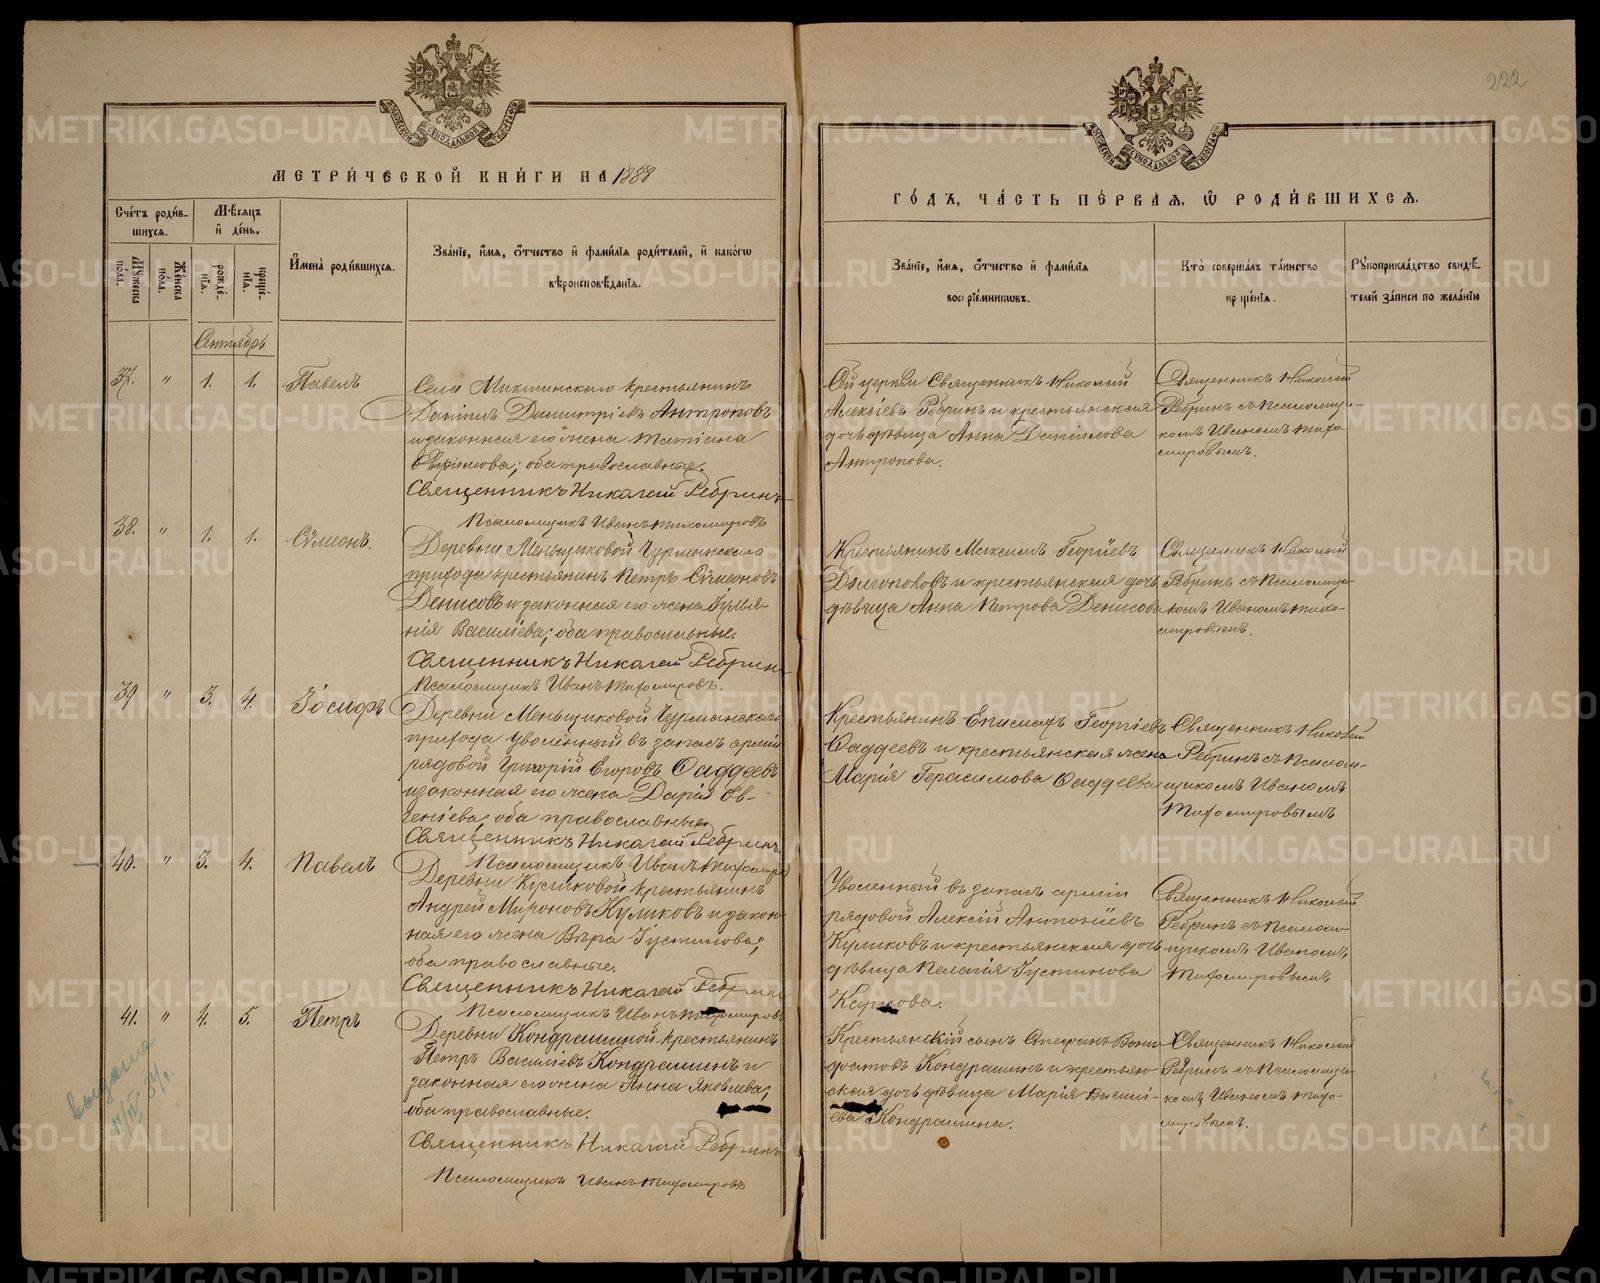 222
МЕТРИ́ЧЕСКОЙ КНИ́ГИ НА 1888
ГО́ДЪ, ЧА́СТЬ ПЕ́РВАЯ, Ѿ РОДИ́ВШИХСЯ.
Сче́тъ роди́вшихся.
Мѣ́сяцъ и де́нь.
Му́жеска по́ла.
Же́нска по́ла.
рожде́нїя.
креще́нїя.
И҆мена̀ роди́вшихся.
Зва́нїе, и҆́мя, ѻ҆́тчество и҆ фами́лїя роди́телей, и҆ како́гѡ
вѣроисповѣ́данїя.
Зва́нїе, и҆́мя, ѻ҆́тчество и҆ фами́лїя
воспрїе́мникѡвъ.
Кто̀ соверша́лъ та́инство
креще́нїя.
Рꙋкоприкла́дство свидѣ́
телей за́писи по жела́нїю
Сентябрь
37. " 1. 1. Павелъ
Села Микшинскаго крестьянинъ
Даніилъ Димитріевъ Антроповъ
и законная его жена Татіана
Евфимова; оба православные.
Священникъ Николай Ребринъ
Псаломщикъ Иванъ Тихомировъ
Сей церкви Священникъ Николай
Алексіевъ Ребринъ и крестьянская
дочь дѣвица Анна Даніилова
Антропова.
Священникъ Николай
Ребринъ съ Псаломщи-
комъ Иваномъ Тихо-
мировымъ.
38. " 1. 1. Сѵмеонъ.
Деревни Меньщиковой Чурманскаго
прихода крестьянинъ Петръ Сѵмеоновъ
Денисовъ и законная его жена Іулья-
нія Василіева; оба православные.
Священникъ Николай Ребринъ
Псаломщикъ Иванъ Тихомировъ.
Крестьянинъ Максимъ Георгіевъ
Долгополовъ и крестьянская дочь
дѣвица Анна Петрова Денисова
Священникъ Николай
Ребринъ съ Псаломщи-
комъ Иваномъ Тихо-
мировымъ.
39 " 3. 4. Іосифъ
Деревни Меньщиковой Чурманскаго
прихода уволенный въ запасъ арміи
рядовой Григорій Егоровъ Фаддеевъ
и законная его жена Дарія Ев-
геніева; оба православные.
Священникъ Николай Ребринъ
Псаломщикъ Иванъ Тихомировъ
Крестьянинъ Епимахъ Георгіевъ
Фаддеевъ и крестьянская жена
Марія Герасимова Фаддеева
Священникъ Николай
Ребринъ съ Псалом-
щикомъ Иваномъ
Тихомировымъ
40. " 3. 4. Павелъ
Деревни Куликовой крестьянинъ
Андрей Мироновъ Куликовъ и закон-
ная его жена Вѣра Іустинова;
оба православные.
Священникъ Николай Ребринъ
Псаломщикъ Иванъ Тихомировъ
Уволенный въ запасъ арміи
рядовой Алексій Антоніевъ
Куликовъ и крестьянская дочь
дѣвица Пелагія Іустинова
Священникъ Николай
Ребринъ съ Псалом-
щикомъ Иваномъ
Тихомировымъ
41. " 4. 5. Петръ
Деревни Кондрашиной крестьянинъ
Петръ Василіевъ Кондрашинъ и
законная его жена Анна Яковлева;
оба православные.
Священникъ Николай Ребринъ
Псаломщикъ Иванъ Тихомировъ
Крестьянскій сынъ Стефанъ
Кондрашинъ и крестьян-
ская дочь дѣвица Марія Василі-
ева Кондрашина.
Священникъ Николай
Ребринъ съ Псаломщи-
комъ Иваномъ Тихо-
мировымъ.
METRIKI.GASO-URAL.RU